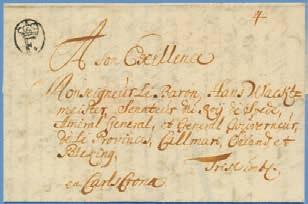 4
A son Excellence
Monseigneur Le Baron, Hans Wacht-
meister, Senateur du Roy de Suede,
Amiral General, et General Gouverneur
de Provinces, Callmar, et
Bleking.
en Carls Crona